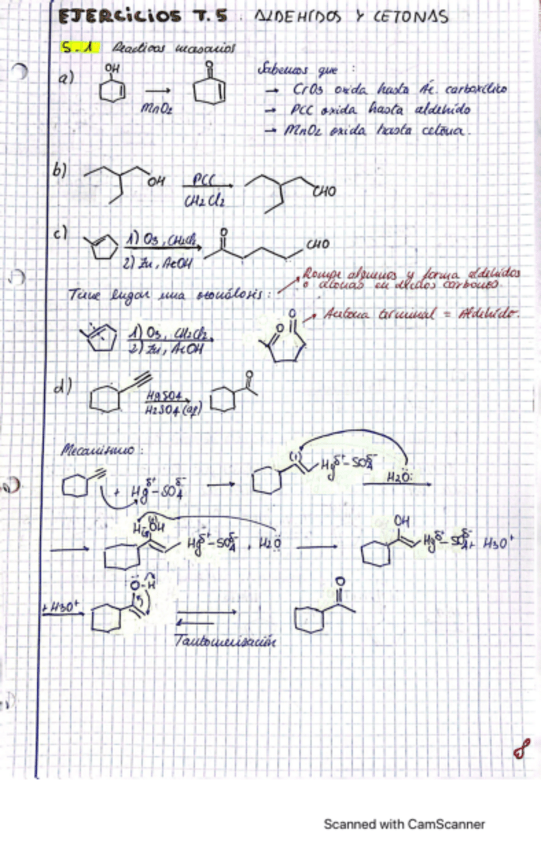 EJERCICIOS T.5 : ALDEHÍDOS Y CETONAS
5.1 Reactivos necesarios
a) OH O
MnO2
Sabemos que :
→ CrO3 oxida hasta Ác. carboxílico
→ PCC oxida hasta aldehído
→ MnO2 oxida hasta cetona.
b) OH PCC CHO
CH2Cl2
c) 1) O3, CH2Cl2 O CHO
2) Zn, AcOH
Rompe alquenos y forma aldehídos
o cetonas en dichos carbonos.
Tiene lugar una ozonólisis :
Cetona terminal = Aldehído.
1) O3, CH2Cl2 O O
2) Zn, AcOH
d) HgSO4 O
H2SO4 (aq)
Mecanismo :
+ Hgδ+-SO4δ- Hgδ+-SO4δ- H2O:
OH Hgδ+-SO4δ- , H2O OH Hgδ+-SO4δ- + H3O+
+H3O+ O-H O
Tautomerización
8
Scanned with CamScanner